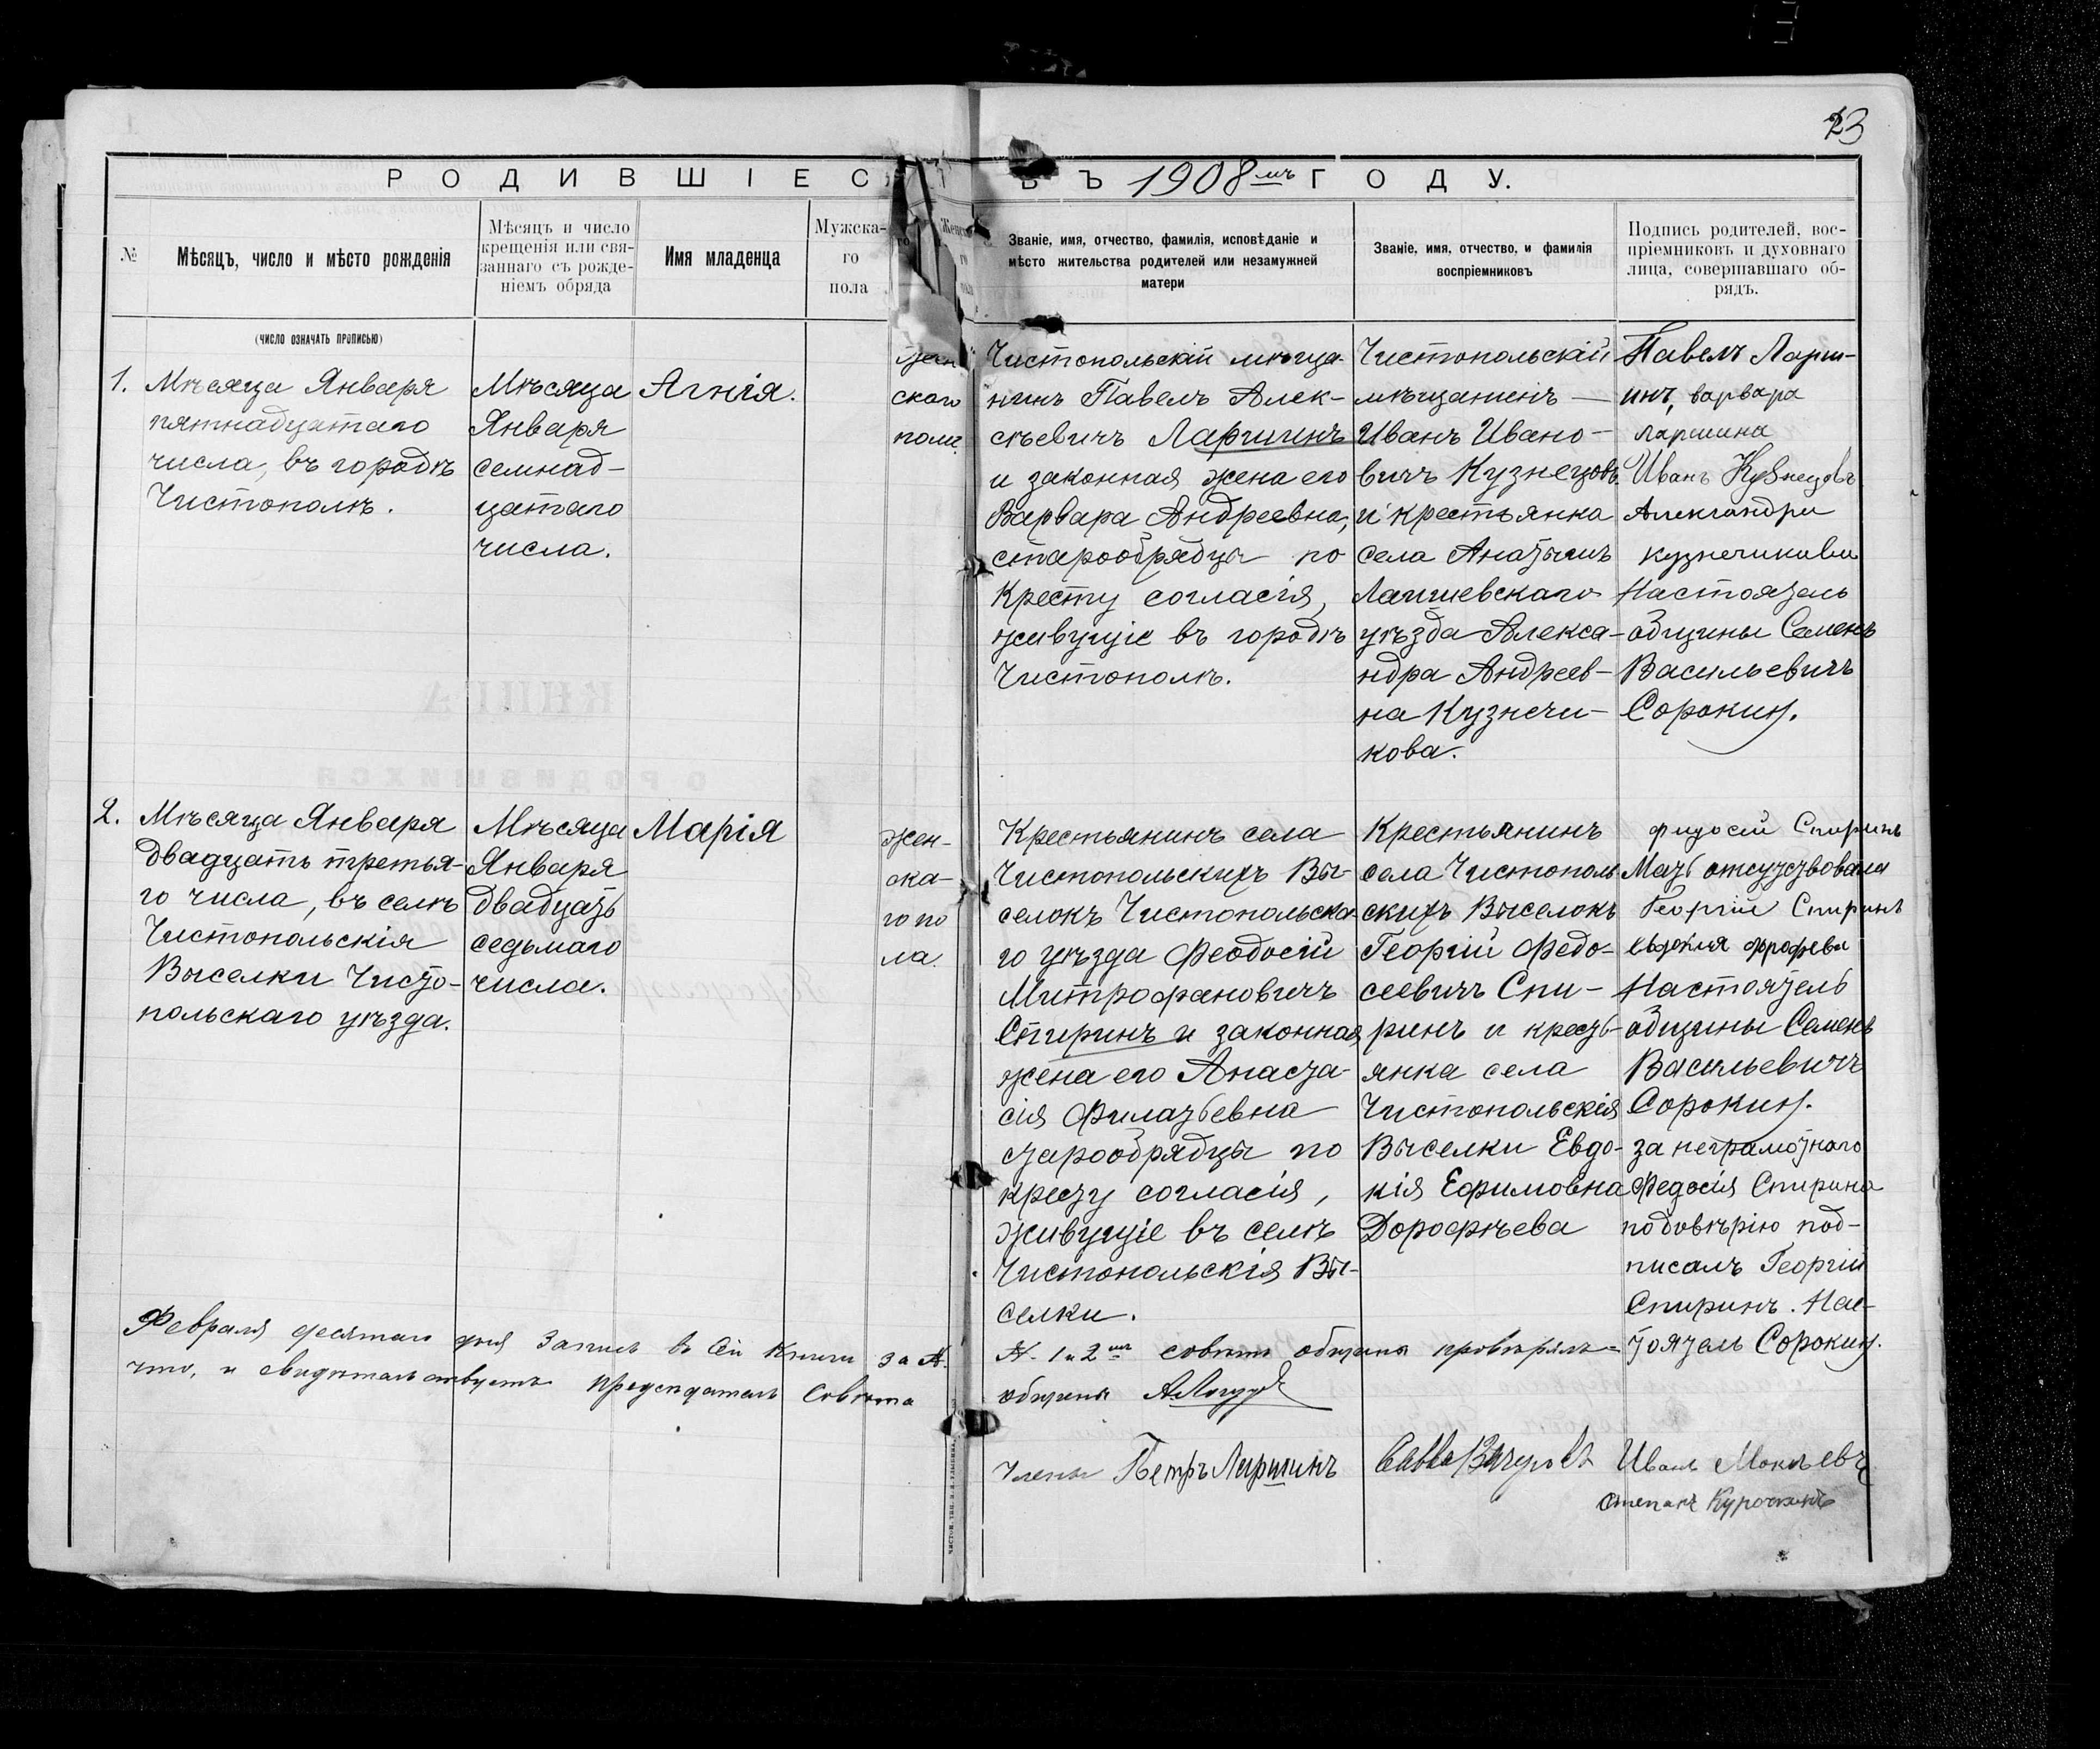 23
РОДИВШІЕСЯ ВЪ 1908 мъ ГОДУ.
№
Мѣсяцъ, число и мѣсто рожденія
Мѣсяцъ и число
крещенія или свя-
заннаго съ рожде-
ніемъ обряда
Имя младенца
Мужска-
го
пола
Званіе, имя, отчество, фамилія, исповѣданіе и
мѣсто жительства родителей или незамужней
матери
Званіе, имя, отчество, и фамилія
воспріемниковъ
Подпись родителей, вос-
пріемниковъ и духовнаго
лица, совершавшаго об-
рядъ.
(число означать прописью)
1.
Мѣсяца Января
пятнадцатаго
числа, въ городѣ
Чистополѣ.
Мѣсяца
Января
семнад-
цатаго
числа.
Агнія.
жен
ского
пола
Чистопольскій мѣща-
нинъ Павелъ Алек-
сѣевичъ Ларшинъ
и законная жена его
Варвара Андреевна,
старообрядцы по
Кресту согласія,
живущіе въ городѣ
Чистополѣ.
Чистопольскій
мѣщанинъ —
Иванъ Ивано-
вичъ Кузнецовъ
и крестьянка
села Анатышъ
Лаишевскаго
уѣзда Алекса-
ндра Андреев-
на Кузнечи-
кова.
Павелъ Ларш-
инъ, варвара
ларшина
Иванъ Кузнецовъ
Александра
кузнечикова
Настоятель
общины Семенъ
Васильевичъ
Сорокин.
2.
Мѣсяца Января
двадцать третья-
го числа, въ селѣ
Чистопольскія
Выселки Чисто-
польскаго уѣзда.
Мѣсяца
Января
двадцать
седьмаго
числа.
Марія
жен-
ска-
го по
ла.
Крестьянинъ села
Чистопольскихъ Вы-
селокъ Чистопольска-
го уѣзда Феодосій
Митрофановичъ
Спиринъ и законная
жена его Анаста-
сія Филатьевна
старообрядцы по
кресту согласія,
живущіе въ селѣ
Чистопольскія Вы-
селки.
Крестьянинъ
села Чистополь
скихъ Выселокъ
Георгій Федо-
сеевичъ Спи-
ринъ и кресть-
янка села
Чистопольскія
Выселки Евдо-
кія Ефимовна
Дорофѣева
фидосій Спиринъ
Мать отсутствовала
Георгій Спиринъ
Настоятель
общины Семенъ
Васильевичъ
Сорокин.
за неграмотного
Федосія Спирина
по довѣрію под-
писалъ Георгій
Спиринъ. Нас-
тоятель Сорокин.
Февраля десятаго дня Запись въ сей Книги за №
№ 1 и 2 совѣтъ общины провѣрялъ
что, и свидѣтельствуетъ предсѣдатель Совѣта
общины
Члены Петръ Ларшинъ
Иванъ Мокѣевъ
Степанъ Курочкинъ